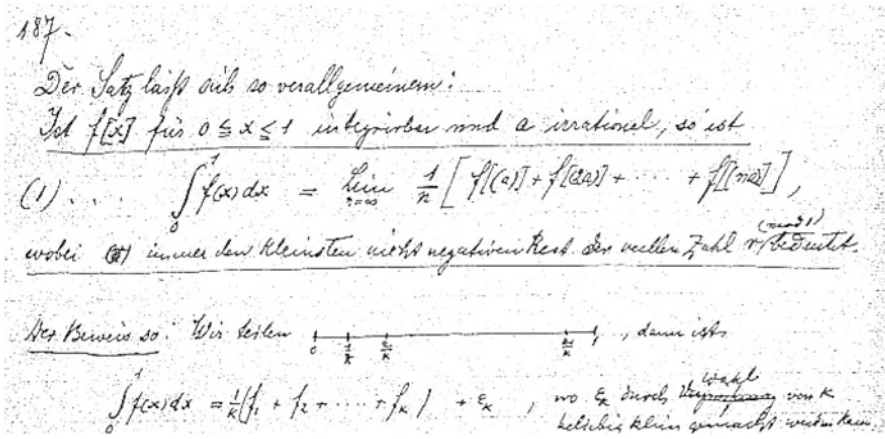 187.
Der Satz lässt sich so verallgemeinern:
Ist f[x] für 0 ≦ x ≦ 1 integrierbar und a irrational, so ist
(1) .... ∫₀¹ f(x) dx = Lim_{n=∞} 1/n [ f[(a)] + f[(2a)] + ..... + f[(na)] ],
wobei (r) immer den kleinsten nicht negativen Rest der reellen Zahl r (mod 1) bedeutet.
Der Beweis so: Wir teilen 0 1/k 2/k 1, dann ist
∫₀¹ f(x) dx = 1/k (f₁ + f₂ + ..... + f_k) + ε_k, wo ε_k durch Wahl von k
beliebig klein gemacht werden kann.